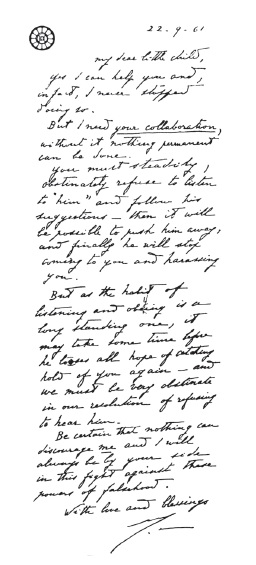 22-9-61
my dear little child,
Yes I can help you and,
in fact, I never stopped
doing so.
But I need your collaboration,
without it nothing permanent
can be done.
You must steadily,
obstinately refuse to listen
to "him" and follow his
suggestions — then it will
be possible to push him away,
and finally he will stop
coming to you and harassing
you.
But as the habit of
listening and obeying is a
long standing one, it
may take some time before
he looses all hope of catching
hold of you again — and
we must be very obstinate
in our resolution of refusing
to hear him.
Be certain that nothing can
discourage me and I will
always be by your side
in this fight against these
powers of falsehood.
With love and blessings